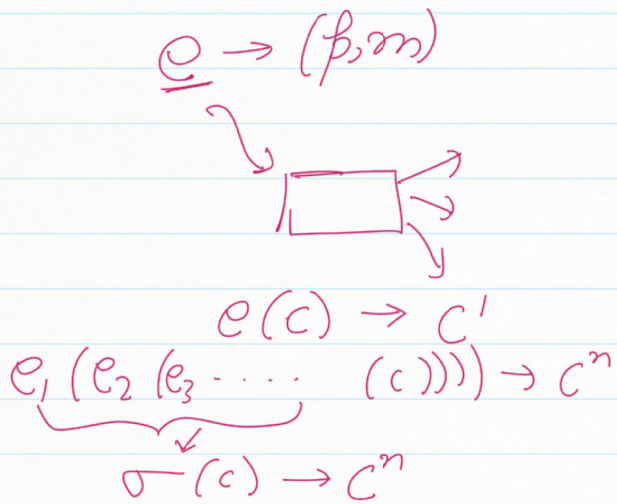 e → (p, m)
e(c) → c'
e₁(e₂(e₃ ..... (c)))) → cⁿ
σ(c) → cⁿ